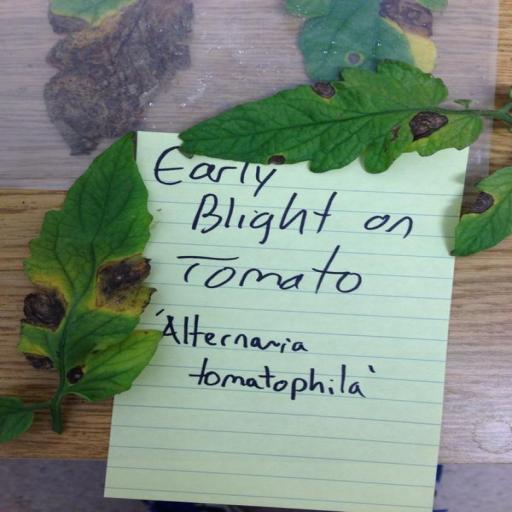 Early
Blight on
Tomato
'Alternaria
tomatophila'